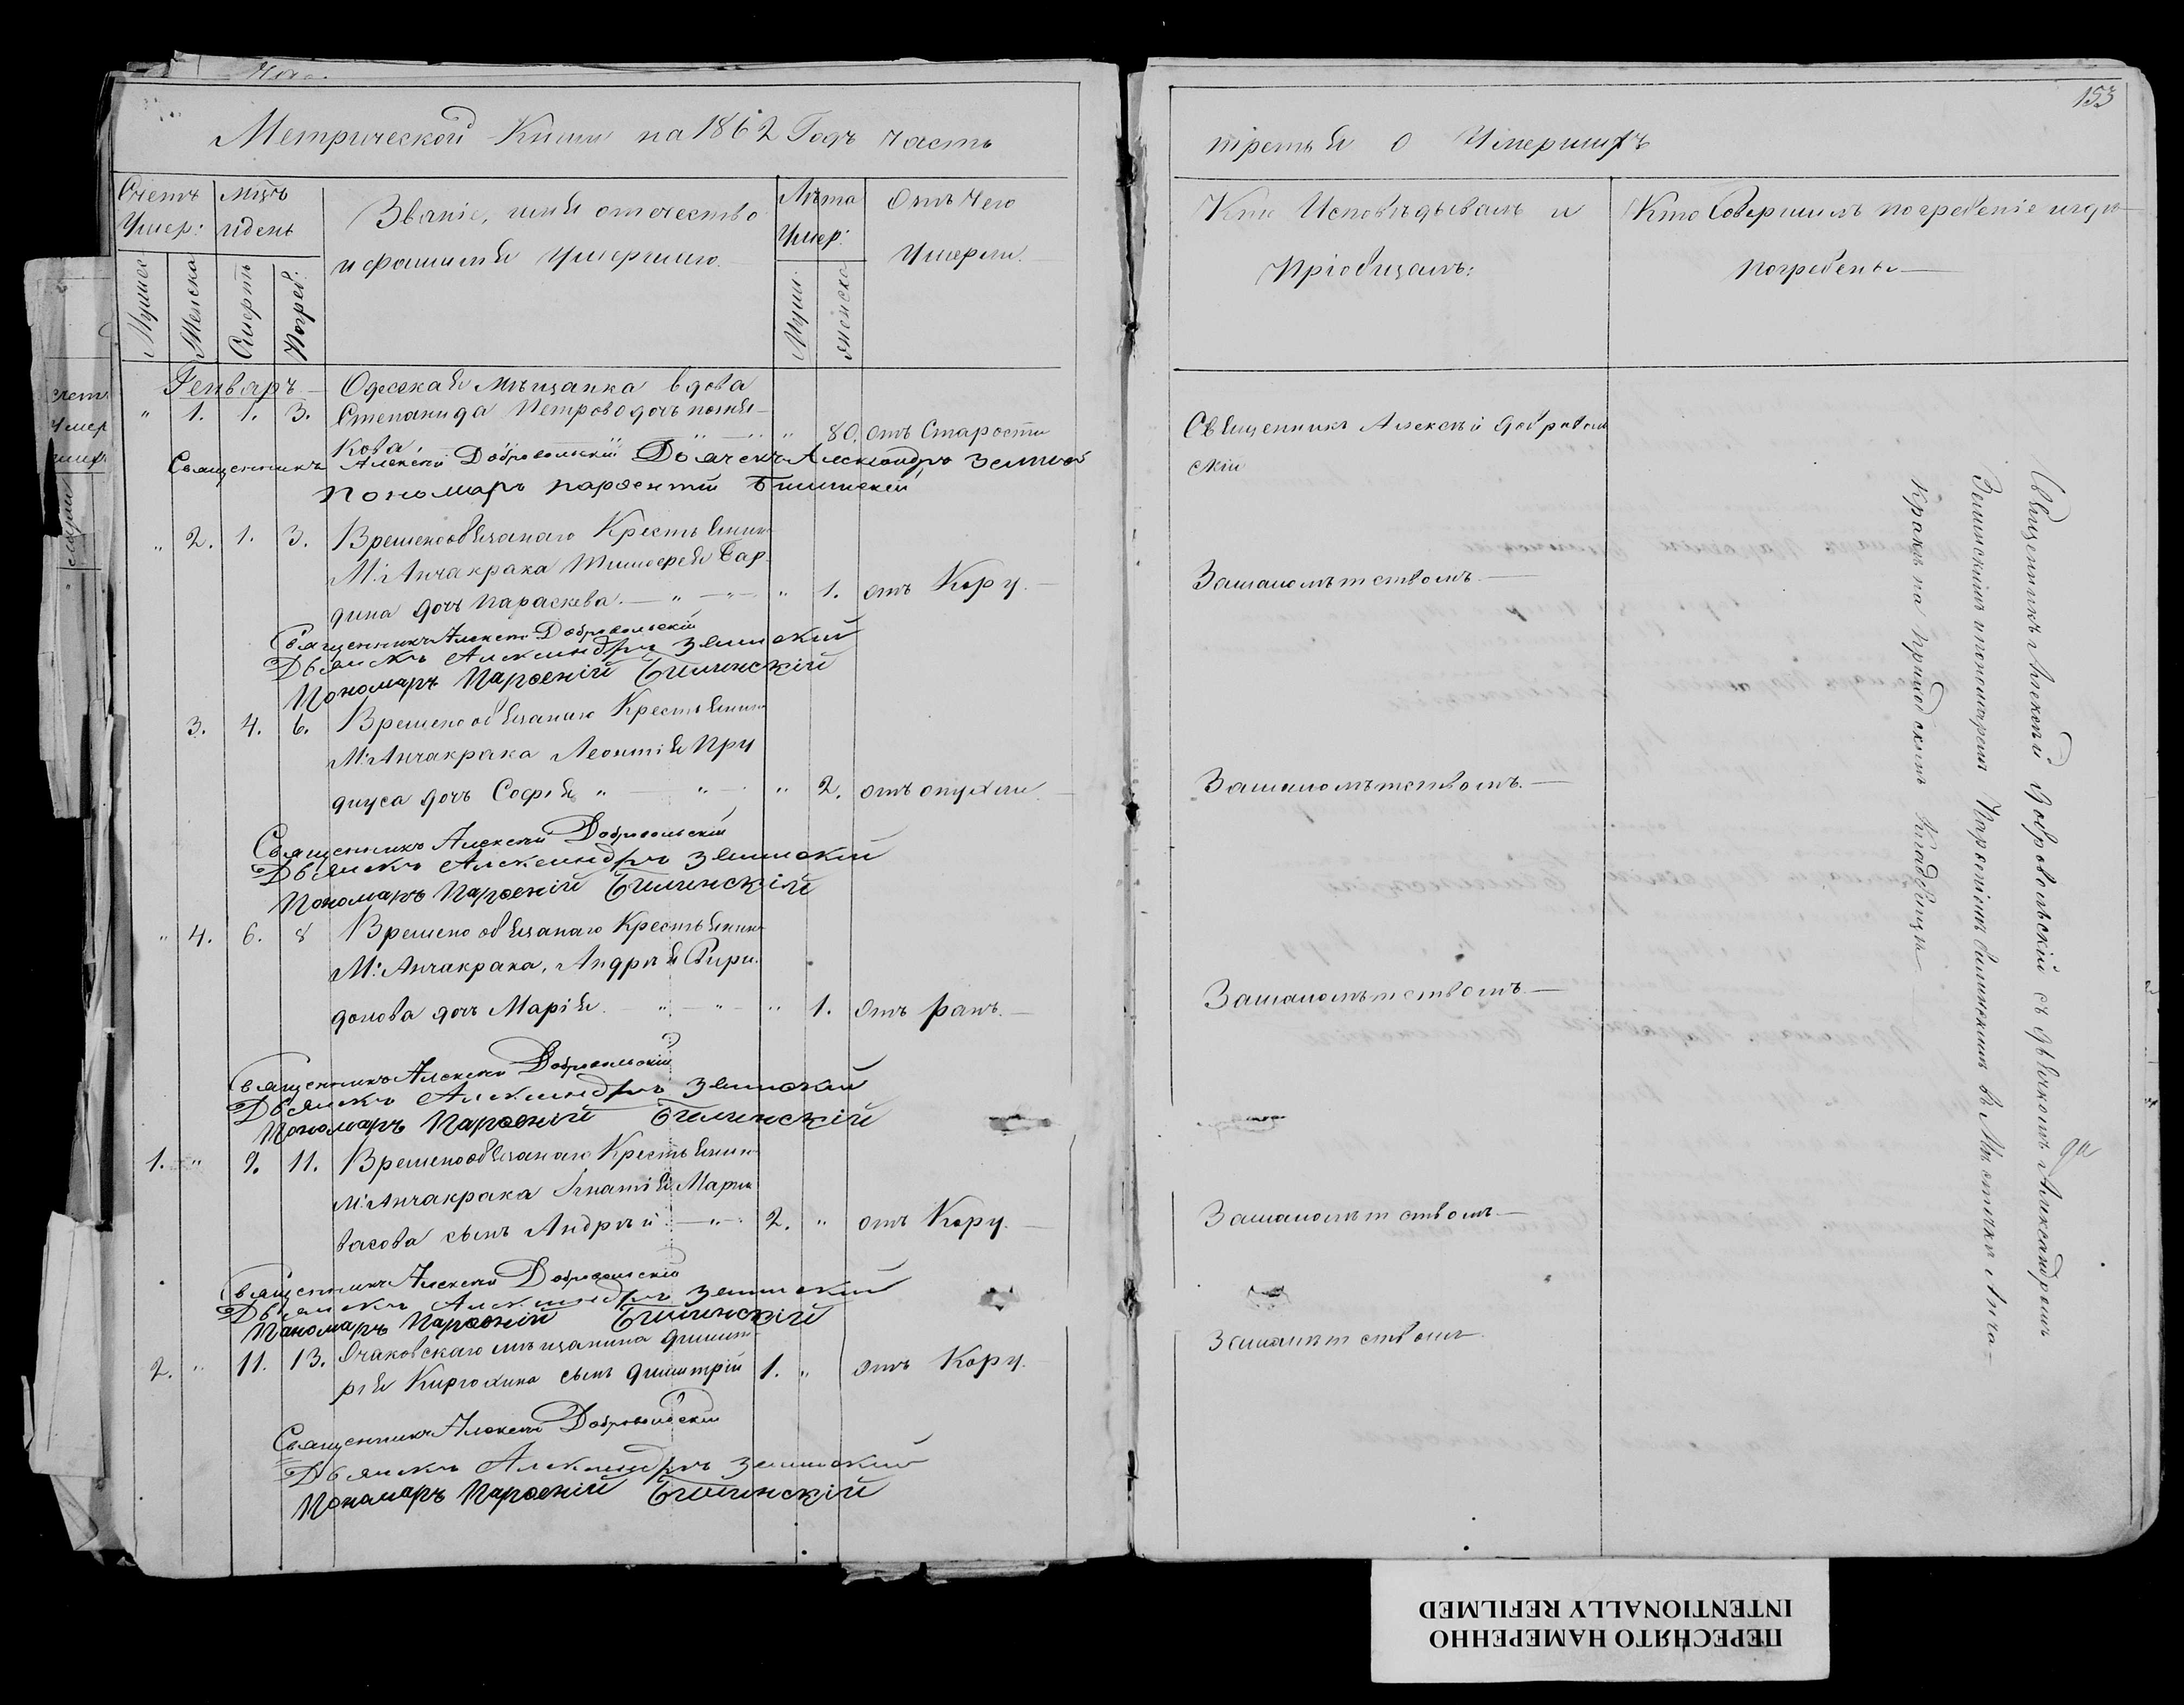 153
Метрической Книги на 1862 Годъ часть
третья о Умершихъ
Счетъ Умер:
Мцъ и день
Званіе, имя отечество
и фамилія Умершаго
Лѣта Умер:
Отъ Чего
Умерли.
Кто Исповѣдывалъ и
Пріобщалъ:
Кто Совершилъ погребеніе и гдѣ
погребены
Мужес
Женска
Смерть
Погреб:
Муж:
женска
Генваръ
Одесская мѣщанка вдова
" 1. 1. 3. Степанида Петрова дочь
кова " 80. отъ Старости
Священникъ Алексѣй Доброволь
скій
Священникъ Алексѣй Добровольскій Дьячекъ Александръ
Пономаръ Парѳентій Билинскій
" 2. 1. 3. Временообязанаго Крестьянин
М: Анчакрака Тимофея Бар
дина дочь Параскева. " 1. отъ Кору.
Замалолѣтствомъ.
Священникъ Алексѣй Добровольскій
Дьячекъ Александръ Зелинский
Пономаръ Парѳеній Билинскій
3. 4. 6. Временообязанаго Крестьянин
М: Анчакрака Леонтія Пру
диуса дочь Софія " " " 2. отъ опухли
Замалолѣтствомъ.
Священникъ Алексѣй Добровольскій
Дьячекъ Александръ Зелинский
Пономаръ Парѳеній Билинскій
" 4. 6. 8 Временообязанаго Крестьянин
М: Анчакрака, Андрѣя Спири
донова дочь Марія. " 1. отъ ранъ.
Замалолѣтствомъ.
Священникъ Алексѣй Добровольскій
Дьячекъ Александръ Зелинский
Пономаръ Парѳеній Билинскій
1. " 9. 11. Временообязанаго Крестьянин
М: Анчакрака Игнатія
васова сынъ Андрѣй " 2. " отъ Кору.
Замалолѣтствомъ
Священникъ Алексѣй Добровольскій
Дьячекъ Александръ Зелинский
Пономаръ Парѳеній Билинскій
2. " 11. 13. Очаковскаго мѣщанина Димит
рія сынъ Димитрій 1. " отъ Кору.
Замалѣтствомъ
Священникъ Алексѣй Добровольскій
Дьячекъ Александръ Зелинский
Пономаръ Парѳеній Билинскій
Священникъ Алексѣй Добровольскій съ дьячкомъ Александромъ
Зелинскимъ и пономаремъ Парѳеніемъ Билинскимъ въ Мѣстечкѣ Анча-
кракъ на приходскомъ кладбищѣ
ПЕРЕСНЯТО НАМЕРЕННО
INTENTIONALLY REFILMED